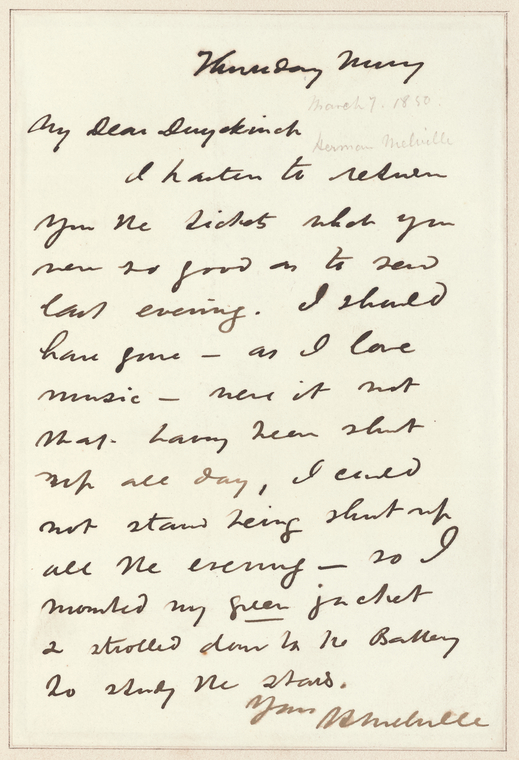 Thursday Morng
March 7. 1850.
My Dear Duyckinck
Herman Melville
I hasten to return
you the tickets which you
were so good as to send
last evening. I should
have gone — as I love
music — were it not
that having been shut
up all day, I could
not stand being shut up
all the evening — so I
mounted my green jacket
& strolled down to the Battery
to study the stars.
Yours
H Melville